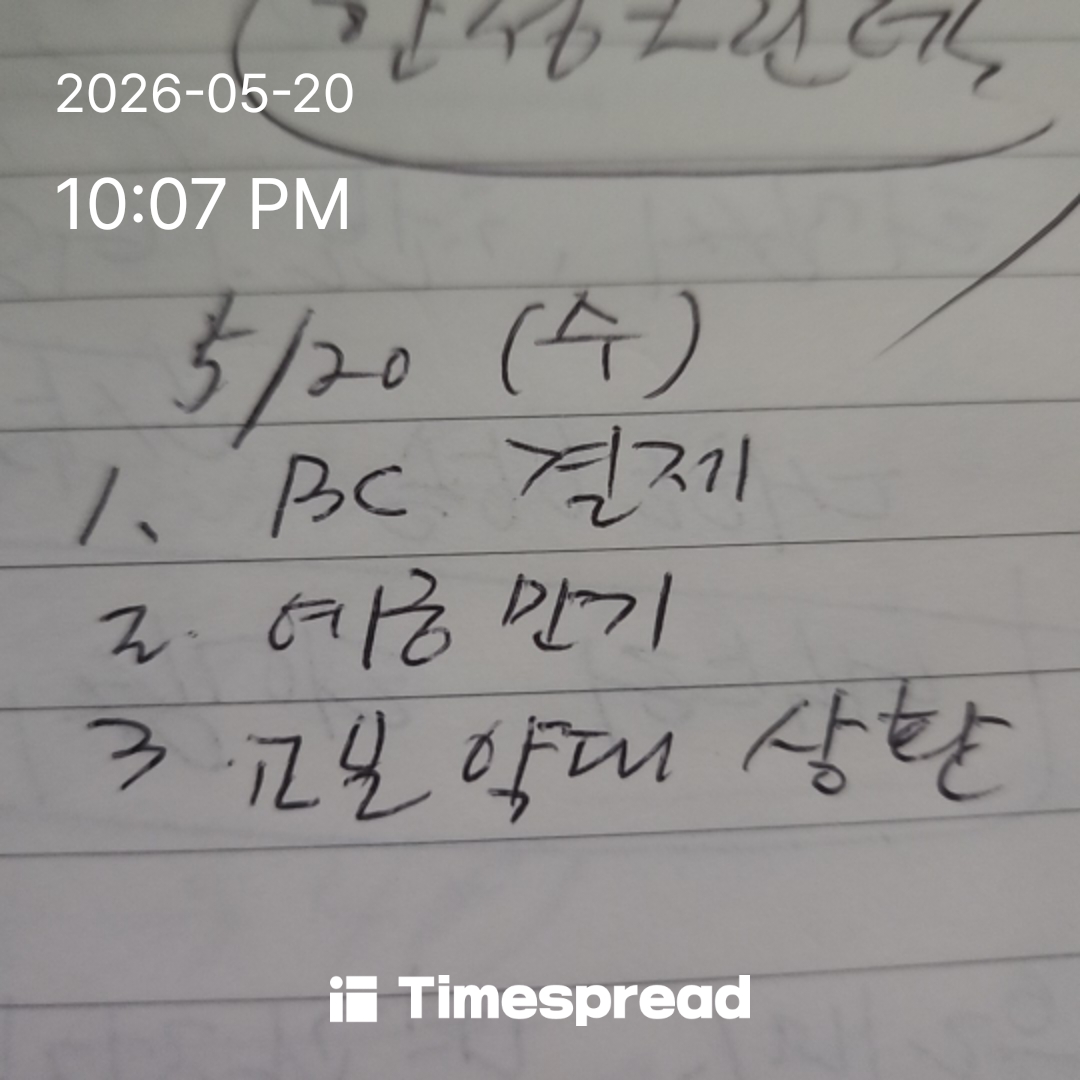 2026-05-20
10:07 PM
5/20 (수)
1. BC 결제
2. 예금 만기
3. 교보 약대 상환
Timespread